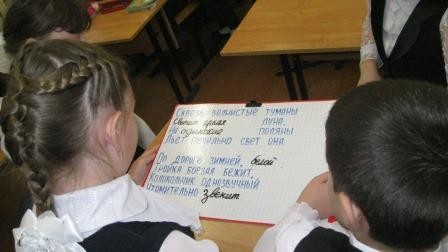 Сквозь волнистые туманы
Светит яркая луна,
На одинокие поляны
Льет печально свет она.
По дороге зимней, белой
Тройка борзая бежит,
Колокольчик однозвучный
Утомительно звенит